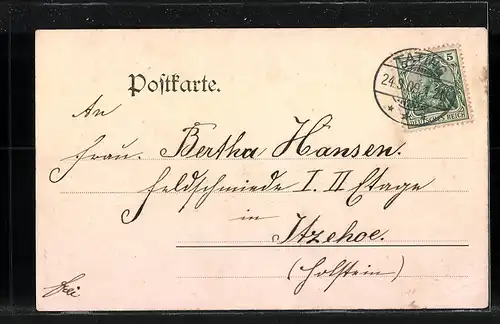 Postkarte.
TATING
24.3.09
5
DEUTSCHES REICH
An
Frau. Bertha Hansen.
Feldschmiede I. II Etage
in
Itzehoe.
(Holstein)
frei